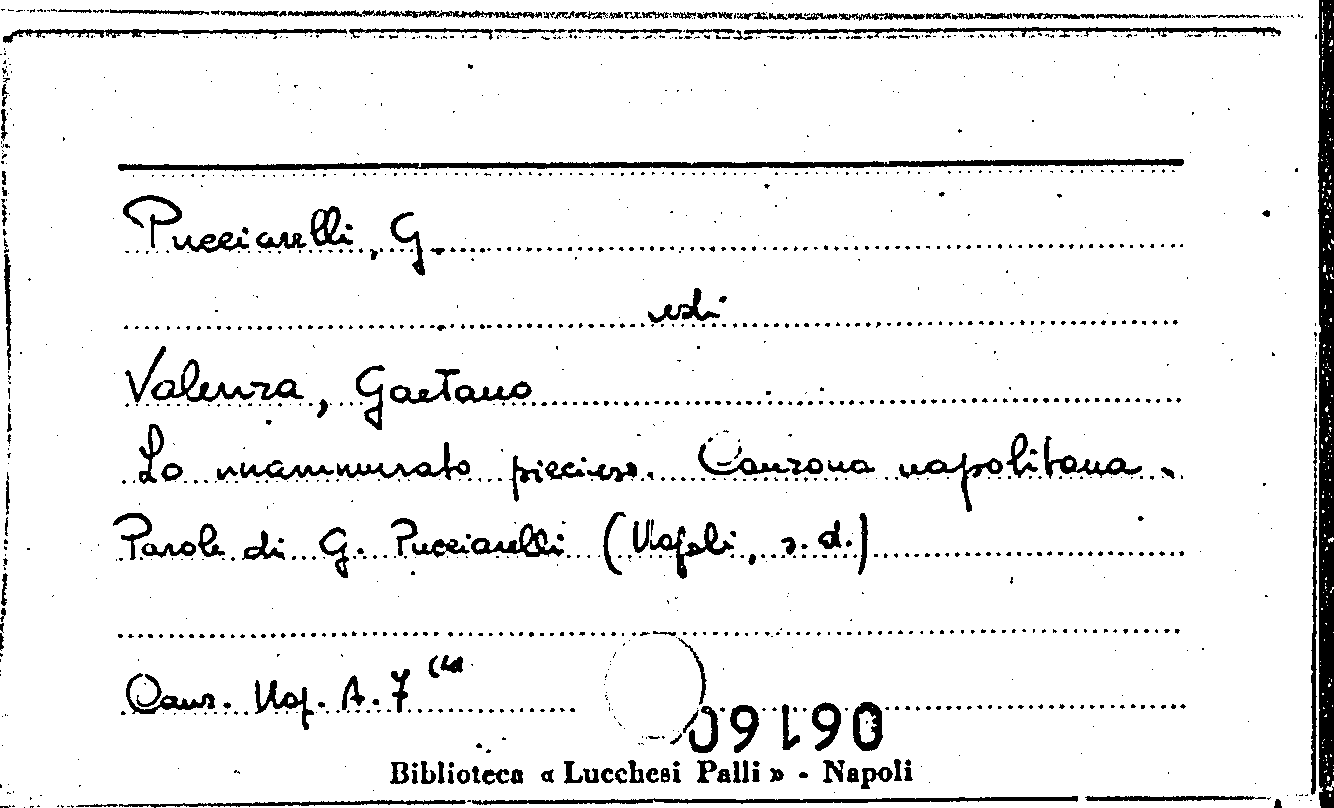 Pucciarelli, G.
vedi
Valenza, Gaetano
Lo nnammurato piccioso. Canzona napolitana.
Parole di G. Pucciarelli (Napoli, s. d.)
Canz. Nap. A. 7
09190
Biblioteca « Lucchesi Palli » - Napoli